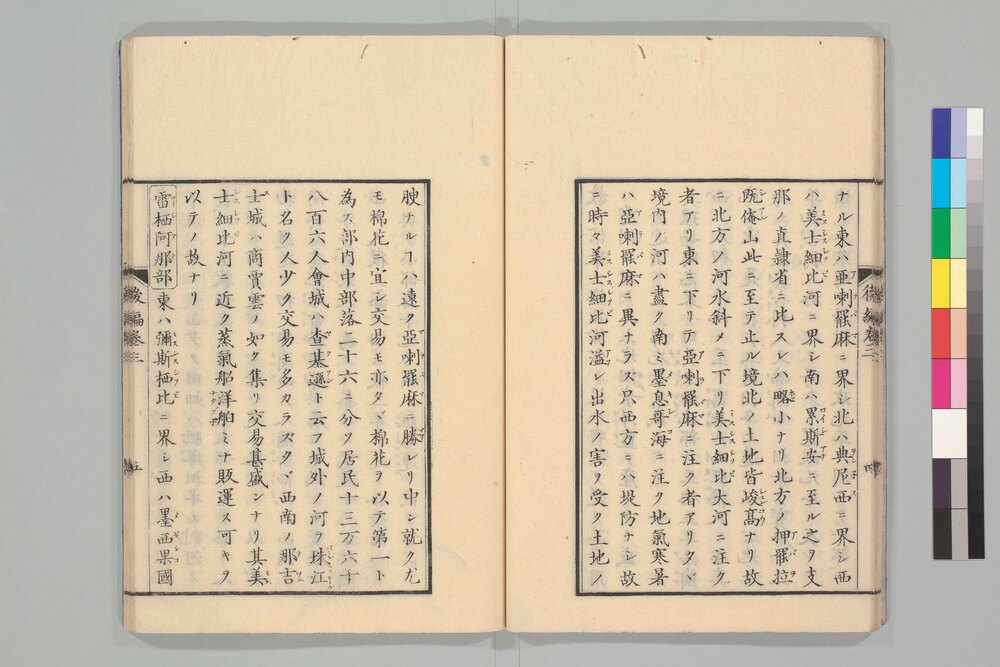 ナル東ハ亞喇罷麻ニ界シ北ハ典尼西ニ界シ西
ハ美士細比河ニ界シ南ハ累斯安ニ至ル之ヲ支
那ノ直隷省ニ比スレハ略小ナリ北方ノ押罷拉
既俺山此ニ至テ止ル境北ノ土地皆峻髙ナリ故
ニ北方ノ河水斜メニ下リ美士細比大河ニ注ク
者アリ東ニ下リテ亞喇罷麻ニ注ク者アリタヾ
境内ノ河ハ盡ク南ミ墨息哥海ニ注ク地氣寒暑
ハ亞喇罷麻ニ異ナラズ只西方ニ堤防ナシ故
ニ時々美士細比河溢レ出水ノ害ヲ受ク土地ノ
後編卷三
四
腴ナルヿハ遠ク亞喇罷麻ニ勝レリ中ン就ク尤
モ棉花ニ宜シ交易モ亦タヾ棉花ヲ以テ第一ト
為ス部内中部落二十六ニ分ツ居民十三万六十
八百六人會城ハ查基遜ト云フ城外ノ河ヲ珠江
ト名ク人少ク交易モ多カラズタヾ西南ノ那吉
士城ハ商賈雲ノ如ク集リ交易甚盛ンナリ其美
士細比河ニ近ク蒸氣船洋舶ミナ販運ス可キヲ
以テノ故ナリ
雷栖阿那部東ハ彌斯栖比ニ界シ西ハ墨西果國
後編卷三
五